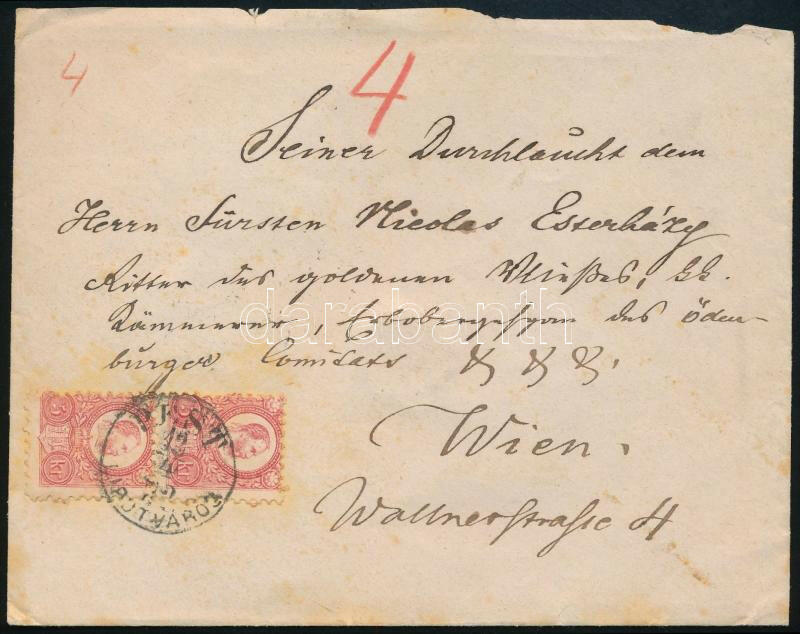 4
4
Seiner Durchlaucht dem
Herrn Fürsten Nicolas Esterházy
Ritter des goldenen Vließes, kk.
Kämmerer, Erbobergespan des öden-
burger Comitats
Wien.
Wallnerstrasse 4
3 kr
kr
PEST
LIPÓTVÁROS
darabanth